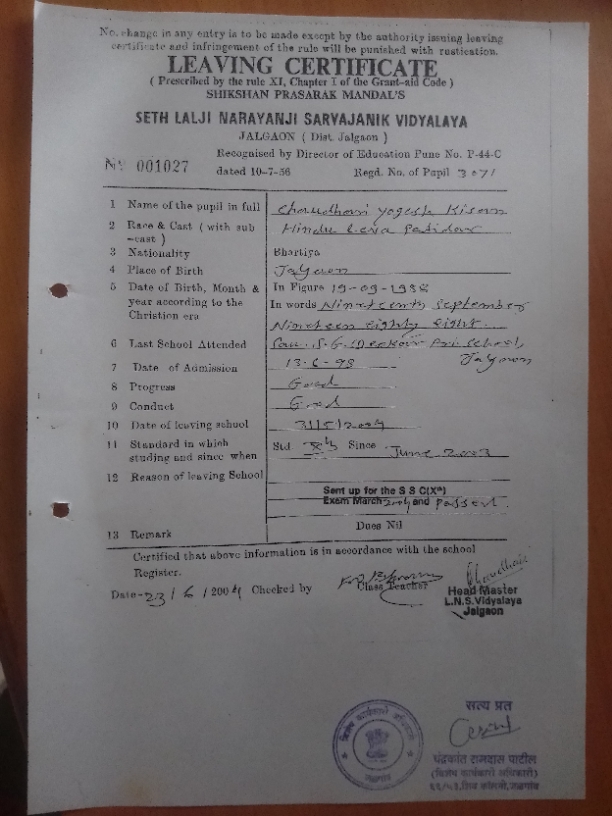 No. change in any entry is to be made except by the authority issuing leaving
certificate and infringement of the rule will be punished with rustication.
LEAVING CERTIFICATE
( Prescribed by the rule XI, Chapter I of the Grant-aid Code )
SHIKSHAN PRASARAK MANDAL'S
SETH LALJI NARAYANJI SARVAJANIK VIDYALAYA
JALGAON ( Dist. Jalgaon )
Recognised by Director of Education Pune No. P-44-C
No 001027 dated 10-7-56 Regd. No. of Pupil 3071
1 Name of the pupil in full Chaudhari Yogesh Kisan
2 Race & Cast ( with sub -cast ) Hindu Leva Patidar
3 Nationality Bhartiya
4 Place of Birth Jalgaon
5 Date of Birth, Month & year according to the Christion era In Figure 19-09-1988
In words Nineteenth September
Nineteen eighty eight
6 Last School Attended Sau. S. G. Pri. School, Jalgaon
7 Date of Admission 13-6-98
8 Progress Good
9 Conduct Good
10 Date of leaving school 31/5/2004
11 Standard in which studing and since when Std Xth Since June 2003
12 Reason of leaving School
Sent up for the S S C(Xth)
Exam March 2004 and Passed.
Dues Nil
13 Remark
Certified that above information is in accordance with the school
Register.
Date-23/6/2004 Checked by Class Teacher
Head Master
L.N.S.Vidyalaya
Jalgaon
सत्य प्रत
विशेष कार्यकारी अधिकारी
जळगांव
चंद्रकांत रामदास पाटील
(विशेष कार्यकारी अधिकारी)